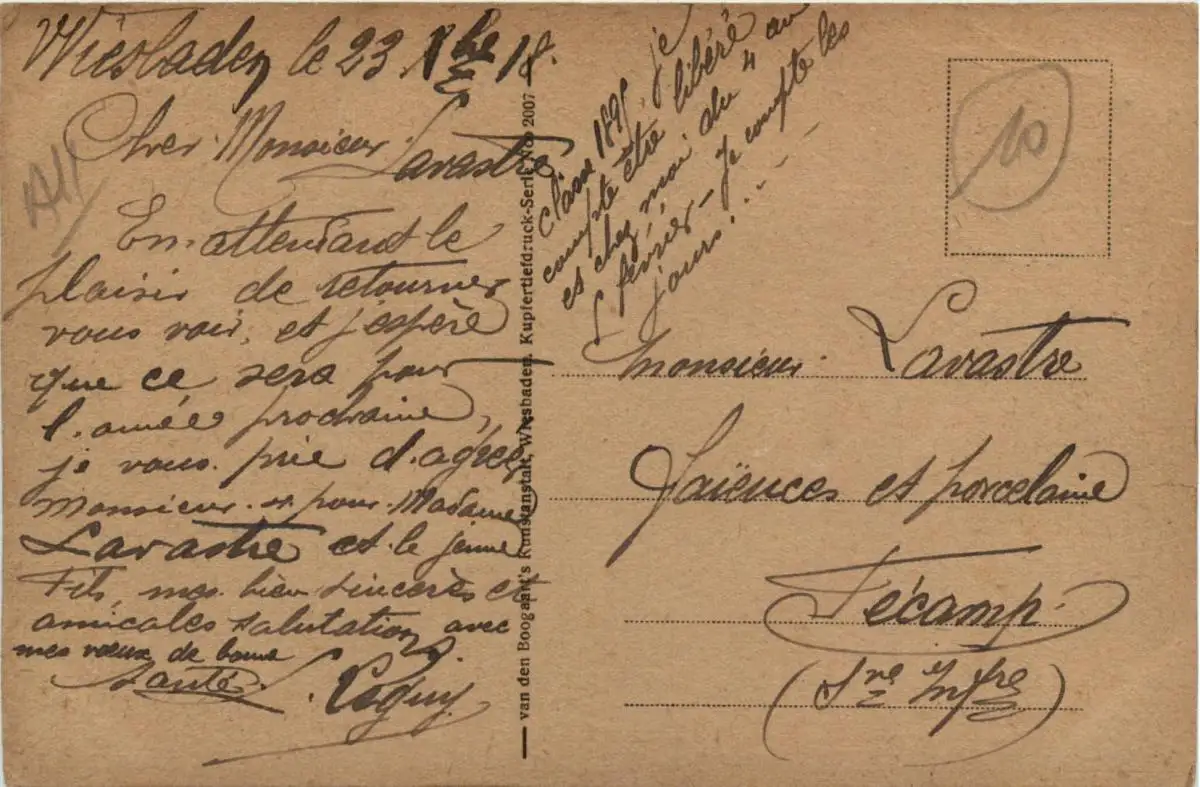 Wiesbaden le 23 Xbre 18.
Cher Monsieur Lavastre
En attendant le
plaisir de retourner
vous voir, et j'espère
que ce sera pour
l'année prochaine,
je vous prie d'agréer
Monsieur et pour Madame
Lavastre et le jeune
Fils, mes bien sincères et
amicales salutations avec
mes vœux de bonne
santé.
classe 1895, je
compte être libéré
et chez moi du 4 au
5 février - Je compte les
jours!...
van den Boogaart's Kunstanstalt, Wiesbaden. Kupfertiefdruck-Serie No 2007
10
Monsieur Lavastre
Faïences et porcelaine
Fécamp.
(Sne Infre)